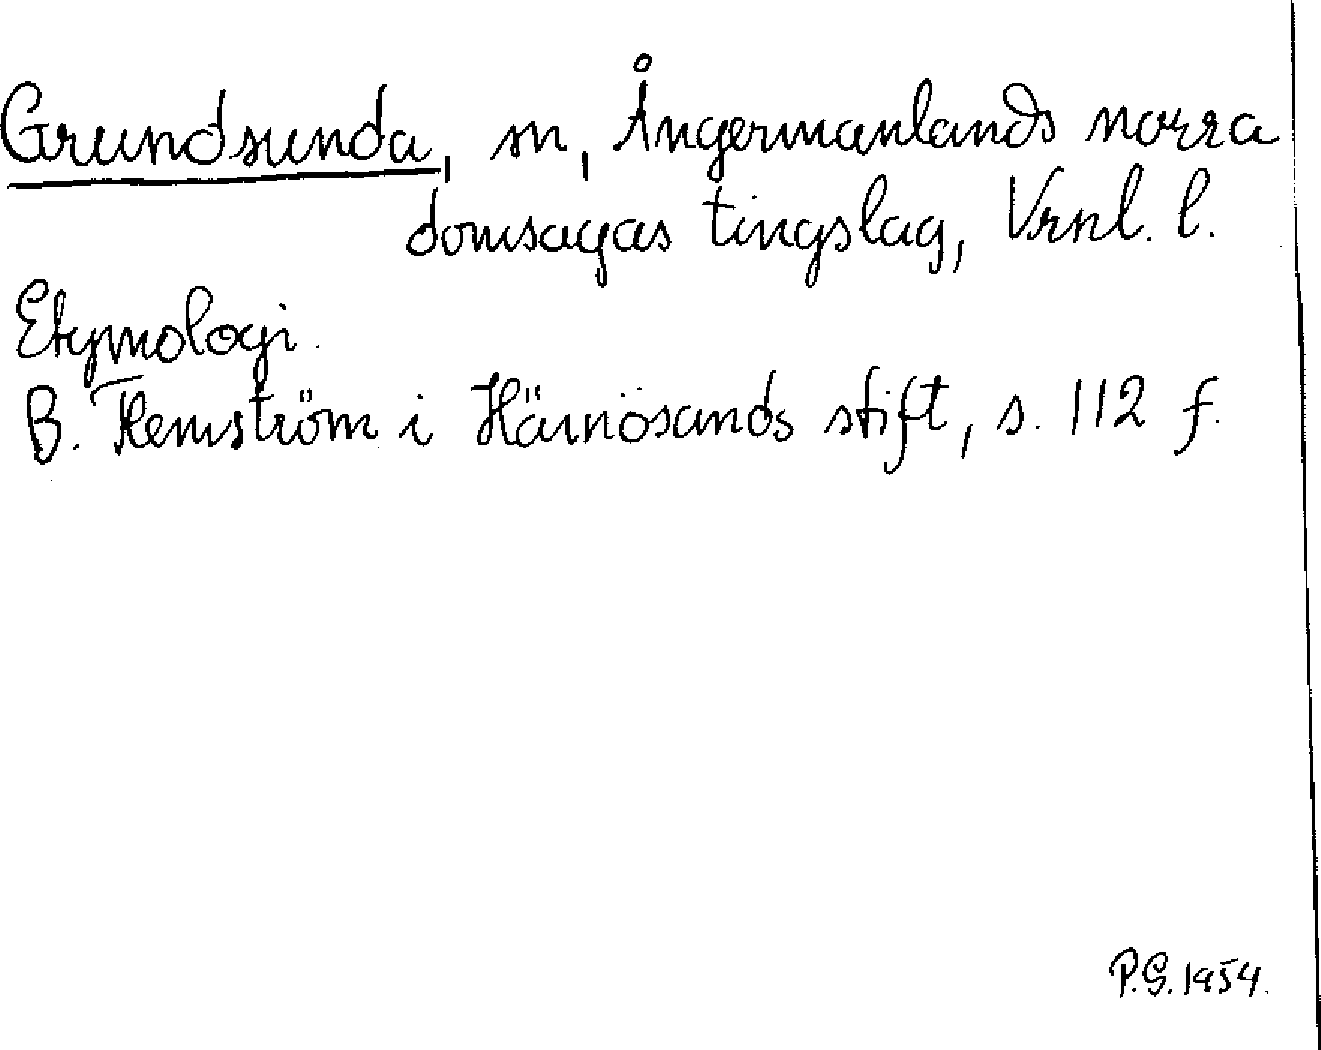 Grundsunda, sn, Ångermanlands norra
domsagas tingslag, Vrnl. l.
Etymologi.
B. Flemström i Härnösands stift, s. 112 f.
P.G. 1954.